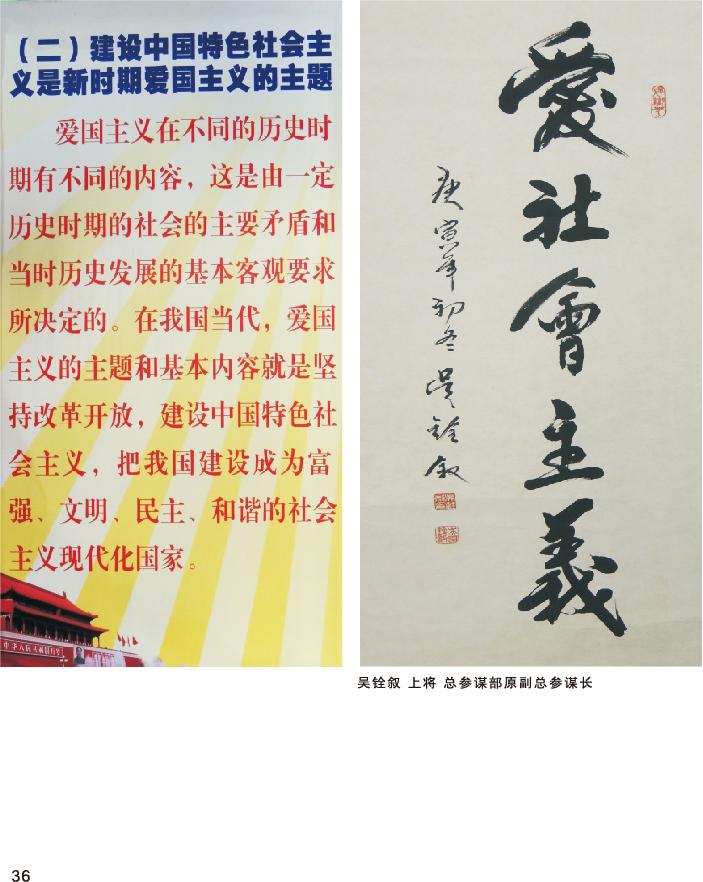 （二）建设中国特色社会主
义是新时期爱国主义的主题
爱国主义在不同的历史时
期有不同的内容，这是由一定
历史时期的社会的主要矛盾和
当时历史发展的基本客观要求
所决定的。在我国当代，爱国
主义的主题和基本内容就是坚
持改革开放，建设中国特色社
会主义，把我国建设成为富
强、文明、民主、和谐的社会
主义现代化国家。
愛社會主義
庚寅年初冬吴銓叙
吴铨叙 上将 总参谋部原副总参谋长
36